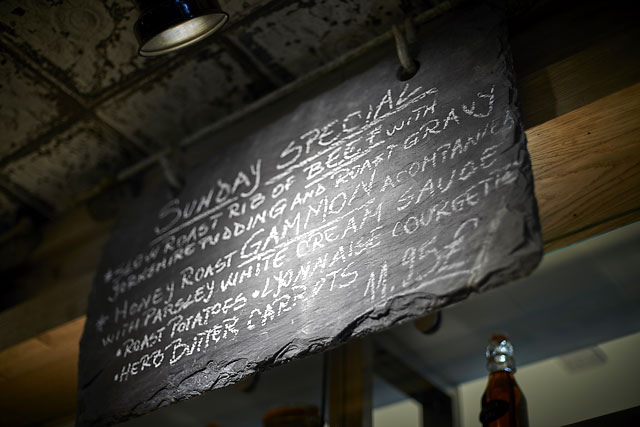 SUNDAY SPECIAL
*SLOW ROAST RIB OF BEEF WITH
YORKSHIRE PUDDING AND ROAST GRAVY
* HONEY ROAST GAMMON ACOMPANIED
WITH PARSLEY WHITE CREAM SAUCE
• ROAST POTATOES • LYONNAISE COURGETTES
• HERB BUTTER CARROTS 11.95£